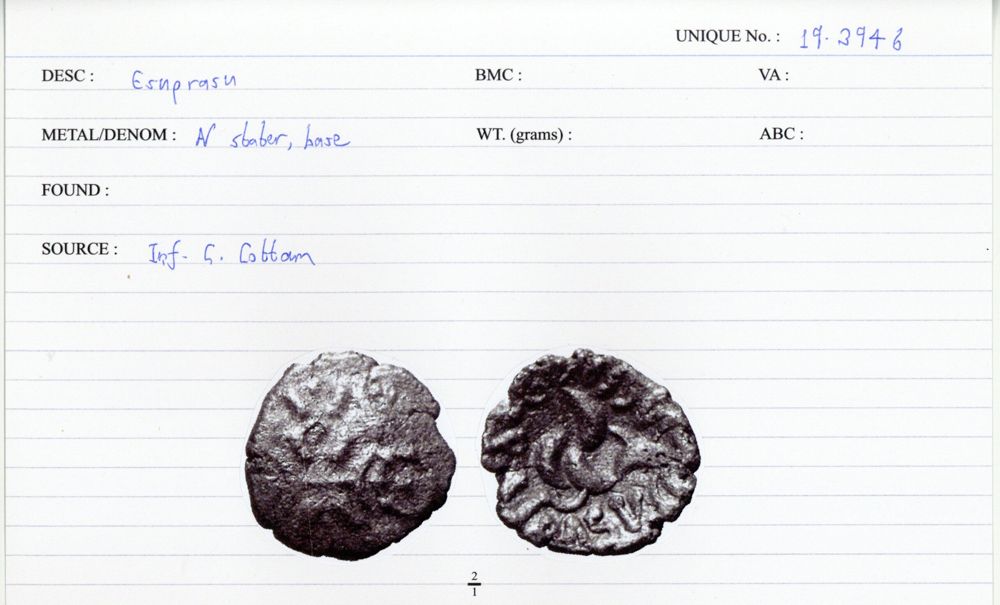 UNIQUE No. : 19.3946
DESC : Esuprasu BMC : VA :
METAL/DENOM : N stater, base WT. (grams) : ABC :
FOUND :
SOURCE : Inf. G. Cottam
2
1